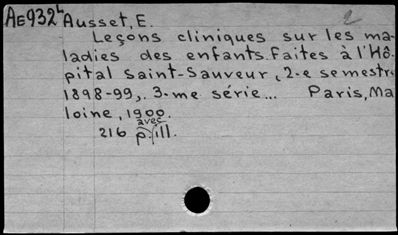 AE932L Ausset, E. 2
Leçons cliniques sur les ma-
ladies des enfants. Faites à l'Hô-
pital Saint-Sauveur, 2-e semestr.
1898-99,. 3-me série... Paris, Ma
loine, 1900.
avec
216 p. ill.